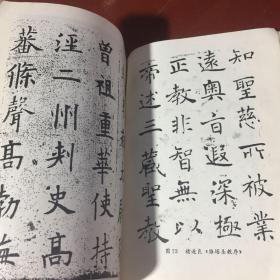 知聖慈所被業
遠奧旨遐深極
正教非智無以
帝述三藏聖教
图73 褚遂良《雁塔圣教序》
曾祖重華使持
涇二州刾史高
蕃條聲高勃海